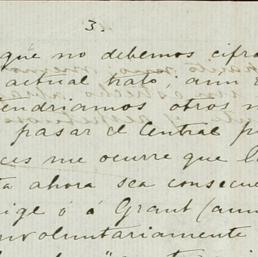 3.
qué no debemos cifra
actual trato, aun
tendriamos otros m
pasar el Central p
ces me ocurre que l
ta ahora sea consecue
ige ó á Grant (aun
nvoluntariamente